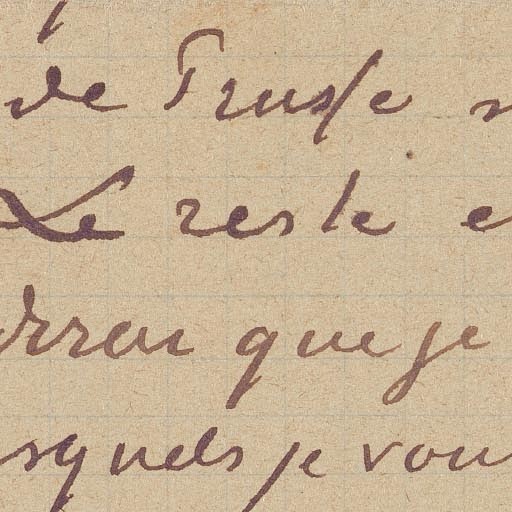 de Prusse
Le reste e
que je
squels je vou